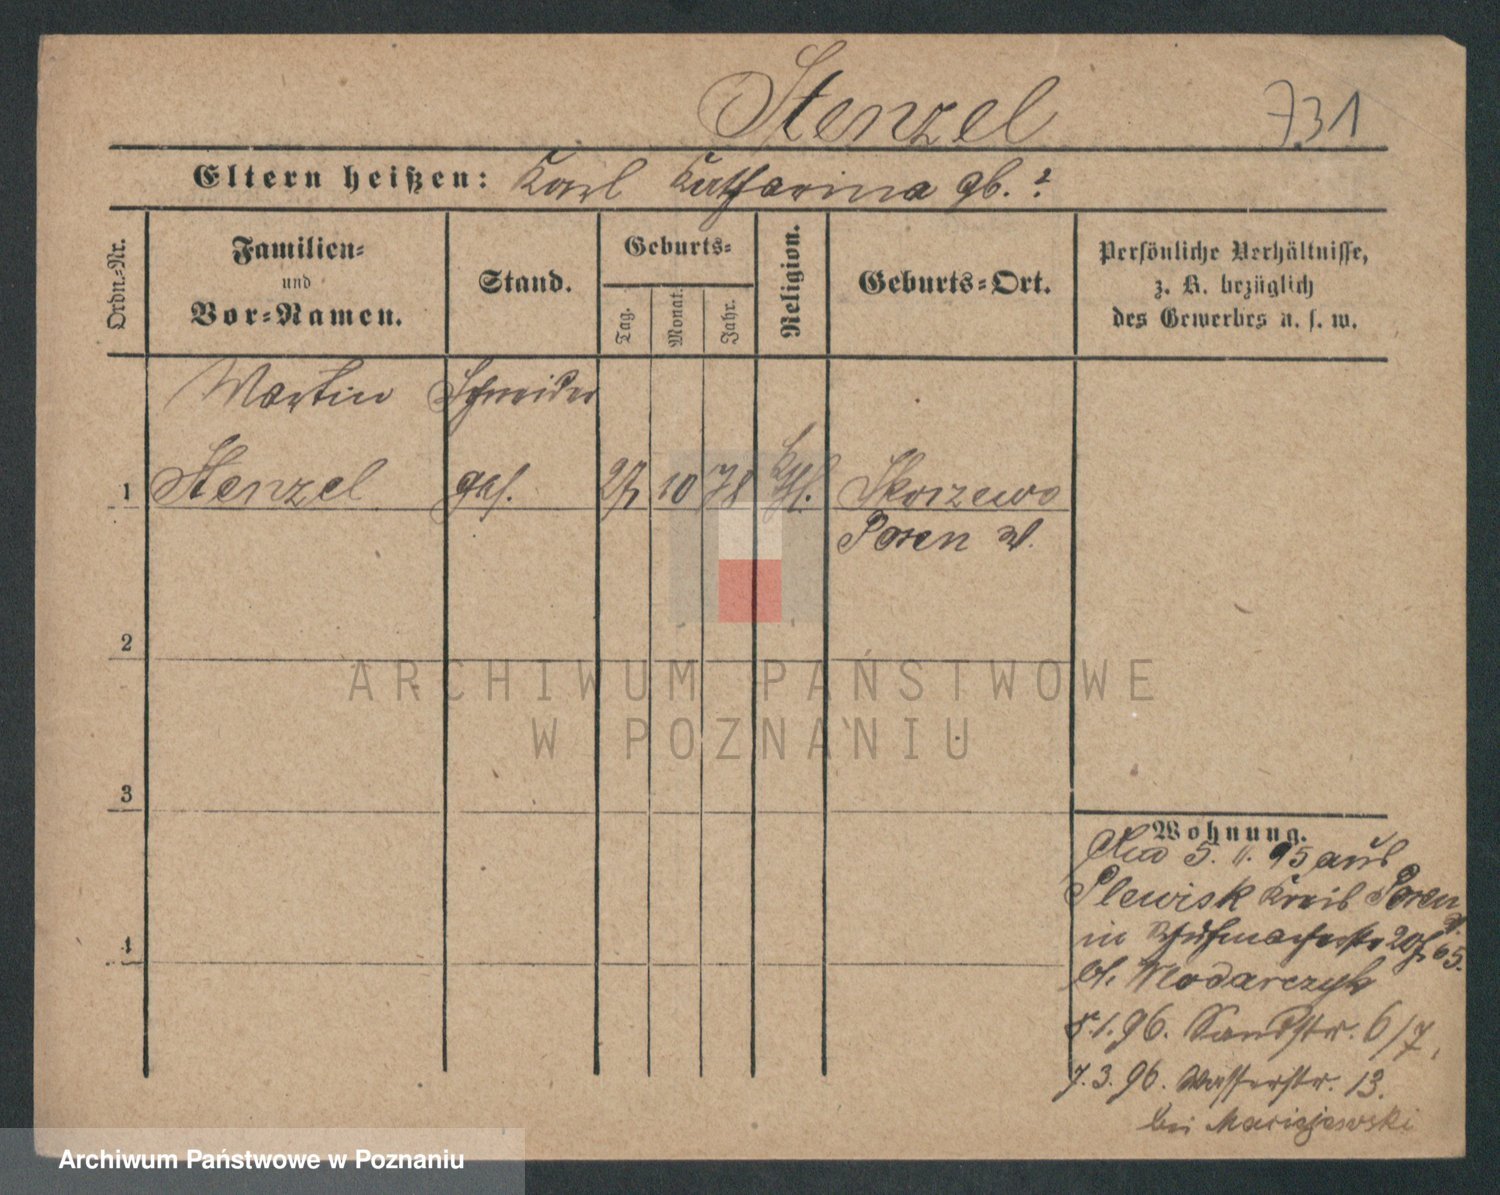 Stenzel
731
Eltern heißen: Karl Katharina gb. ?
Ordn.-Nr.
Familien-
und
Vor-Namen.
Stand.
Geburts-
Tag.
Monat.
Jahr.
Religion.
Geburts-Ort.
Persönliche Verhältnisse,
z. B. bezüglich
des Gewerbes u. s. w.
Martin Schneider
1 Stenzel 27 10 78 Kth. Skorzewo
Posen W.
2
3
4
Wohnung.
5. 11. 95 aus
Plewisk Kreis Posen W.
in
bei Wlodarczyk
8.1.96. Sandstr. 6/7,
7.3.96. Wasserstr. 13.
bei Maciejewski
ARCHIWUM PAŃSTWOWE
W POZNANIU
Archiwum Państwowe w Poznaniu